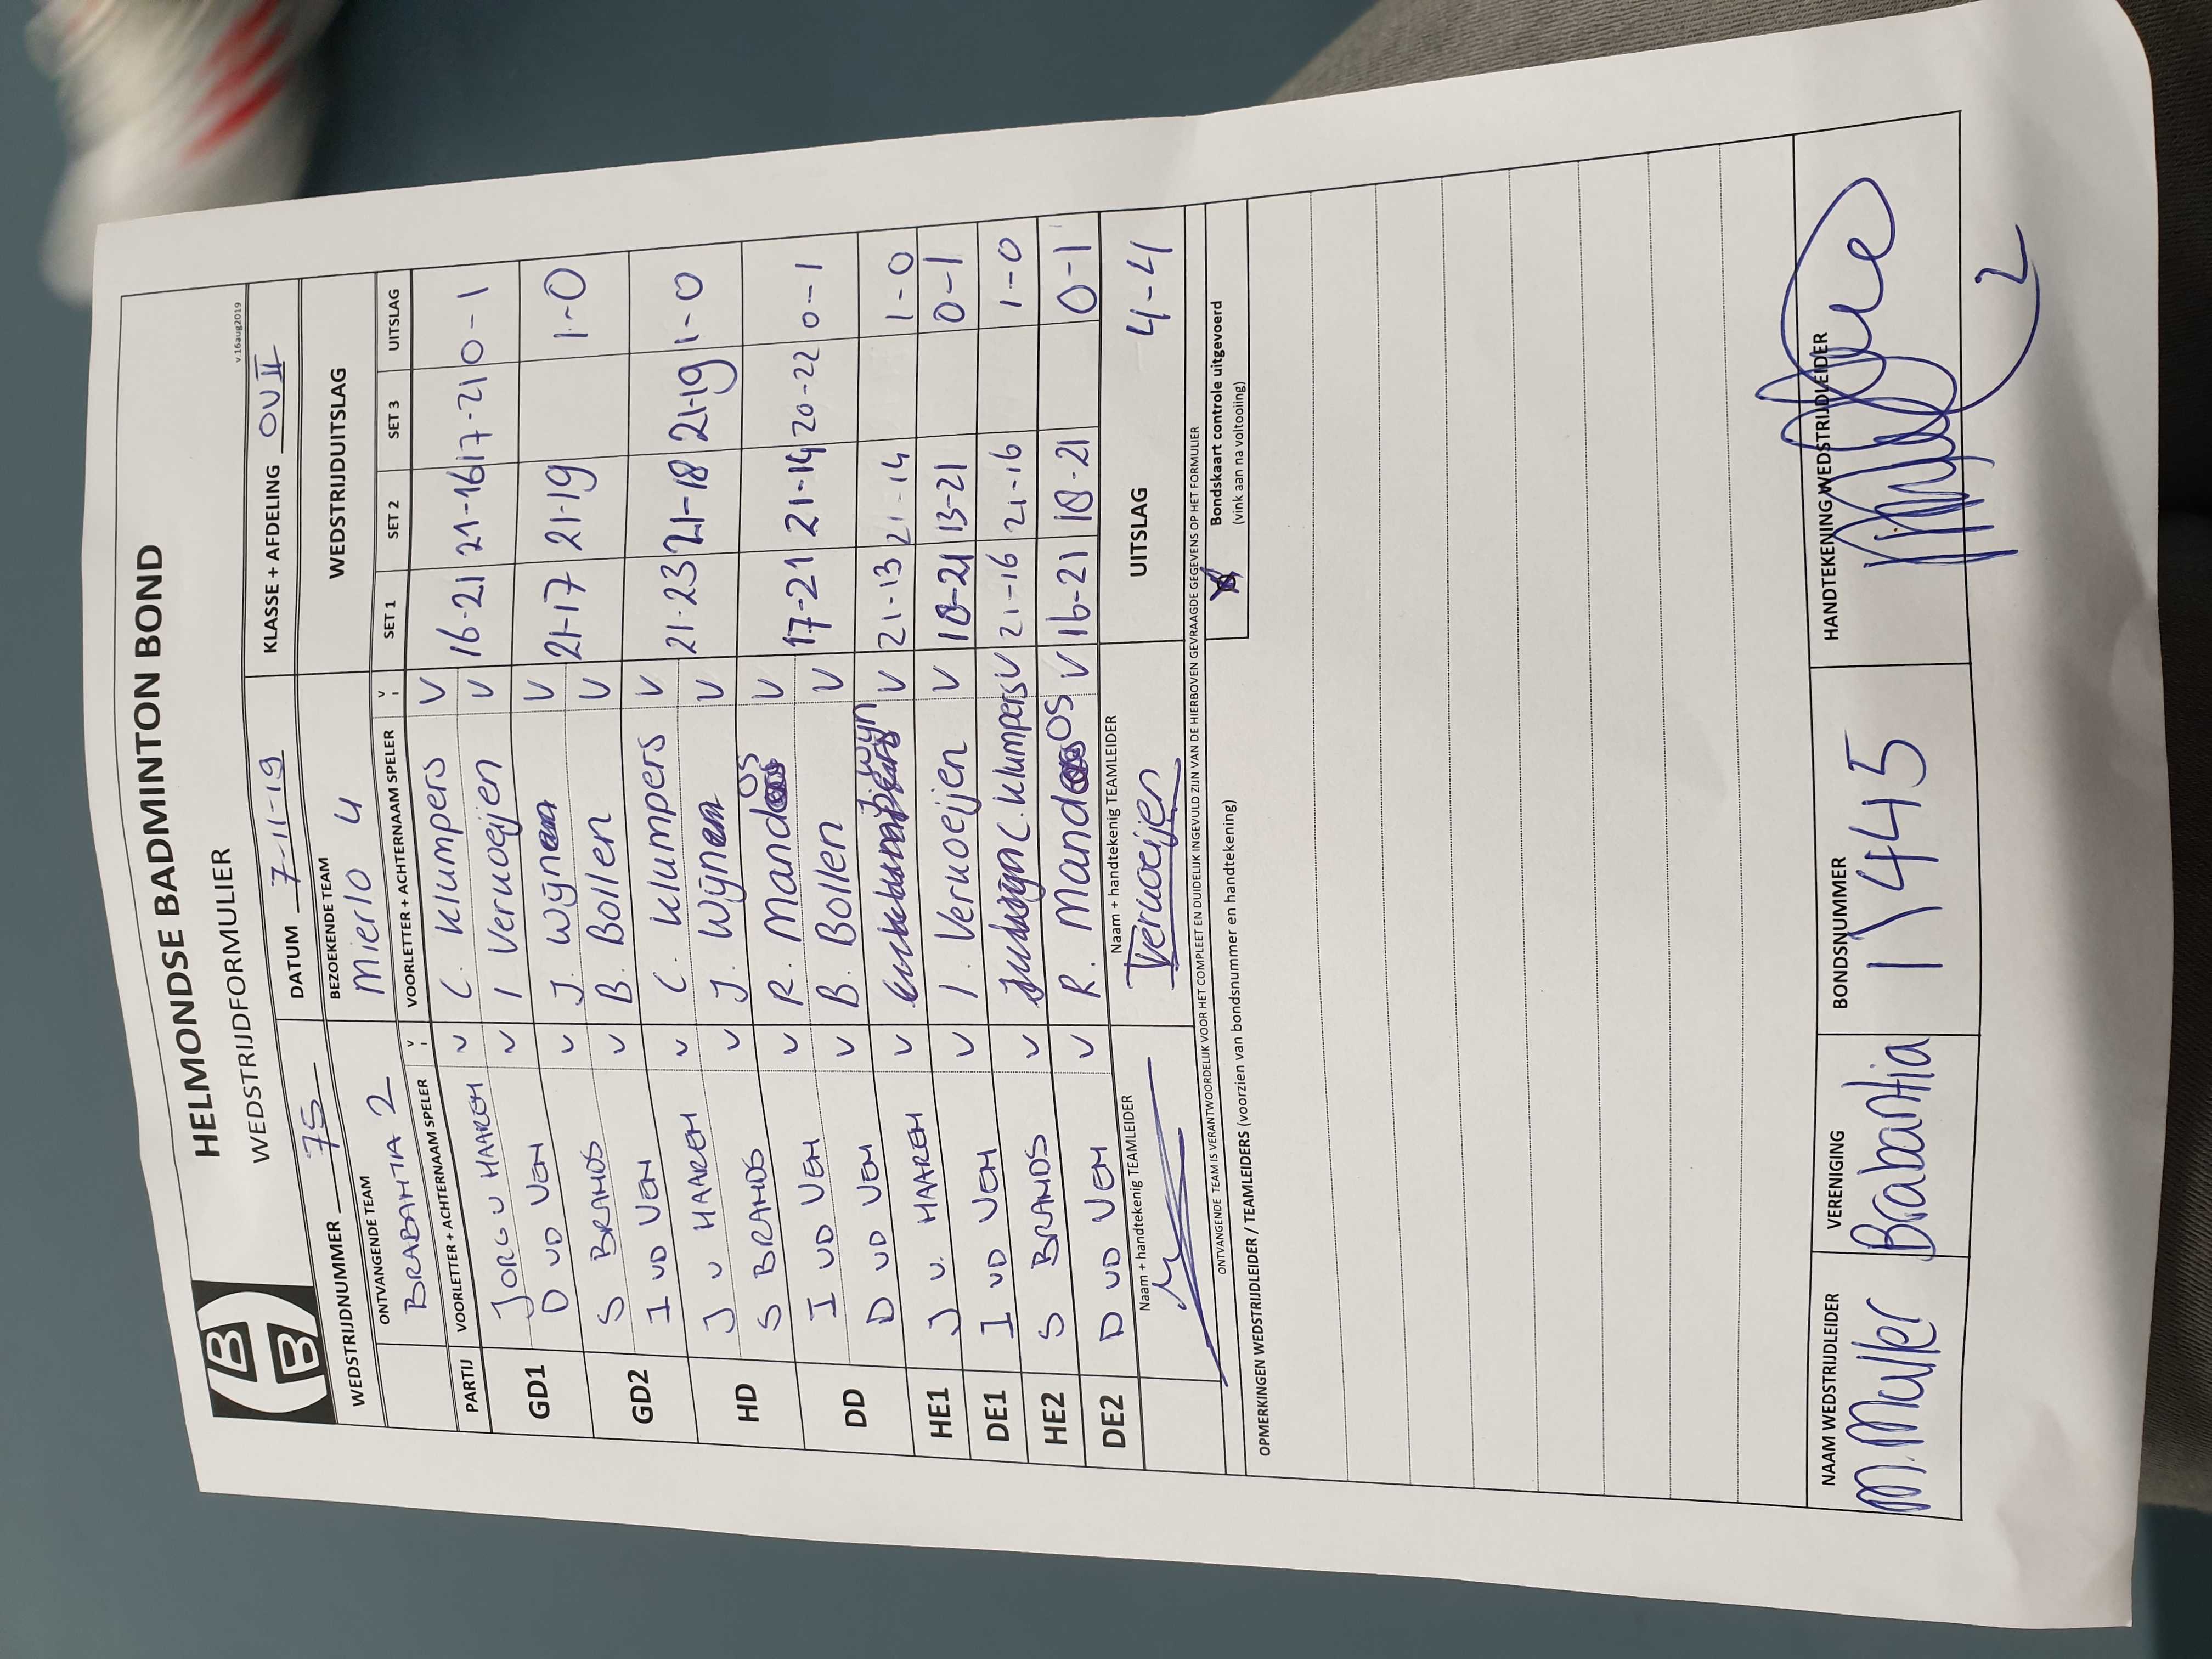 HELMONDSE BADMINTON BOND
WEDSTRIJDFORMULIER
v.16aug2019
WEDSTRIJDNUMMER 75 DATUM 7-11-19 KLASSE + AFDELING OV II
ONTVANGENDE TEAM BEZOEKENDE TEAM WEDSTRIJDUITSLAG
BRABANTIA 2 Mierlo 4
PARTIJ VOORLETTER + ACHTERNAAM SPELER V VOORLETTER + ACHTERNAAM SPELER V SET 1 SET 2 SET 3 UITSLAG
GD1 JORG V HAAREN V C. Klumpers V 16-21 21-16 17-21 0-1
D VD VEN V I Vervoeijen V
GD2 S BRANDS V J. Wijn V 21-17 21-19 1-0
I VD VEN V B. Bollen V
HD J V HAAREN V C Klumpers V 21-23 21-18 21-19 1-0
S BRANDS V J. Wijn V
DD I VD VEN V R. Mandos V 17-21 21-14 20-22 0-1
D VD VEN V B. Bollen V
HE1 J V. HAAREN V Wijn V 21-13 21-14 1-0
DE1 I VD VEN V I. Vervoeijen V 18-21 13-21 0-1
HE2 S BRANDS V C. Klumpers V 21-16 21-16 1-0
DE2 D VD VEN V R. Mandos V 16-21 18-21 0-1
Naam + handtekenig TEAMLEIDER Naam + handtekenig TEAMLEIDER UITSLAG 4-4
Vervoeijen
ONTVANGENDE TEAM IS VERANTWOORDELIJK VOOR HET COMPLEET EN DUIDELIJK INGEVULD ZIJN VAN DE HIERBOVEN GEVRAAGDE GEGEVENS OP HET FORMULIER
OPMERKINGEN WEDSTRIJDLEIDER / TEAMLEIDERS (voorzien van bondsnummer en handtekening) X Bondskaart controle uitgevoerd
(vink aan na voltooiing)
NAAM WEDSTRIJDLEIDER VERENIGING BONDSNUMMER HANDTEKENING WEDSTRIJDLEIDER
M. Muller Brabantia 17445